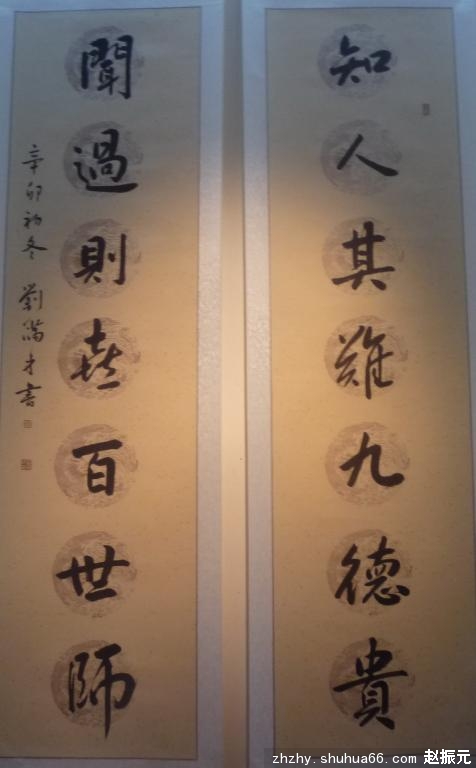 知人其難九德貴
聞過則喜百世師
辛卯初冬 劉滿才書
zhzhy.shuhua66.com 赵振元